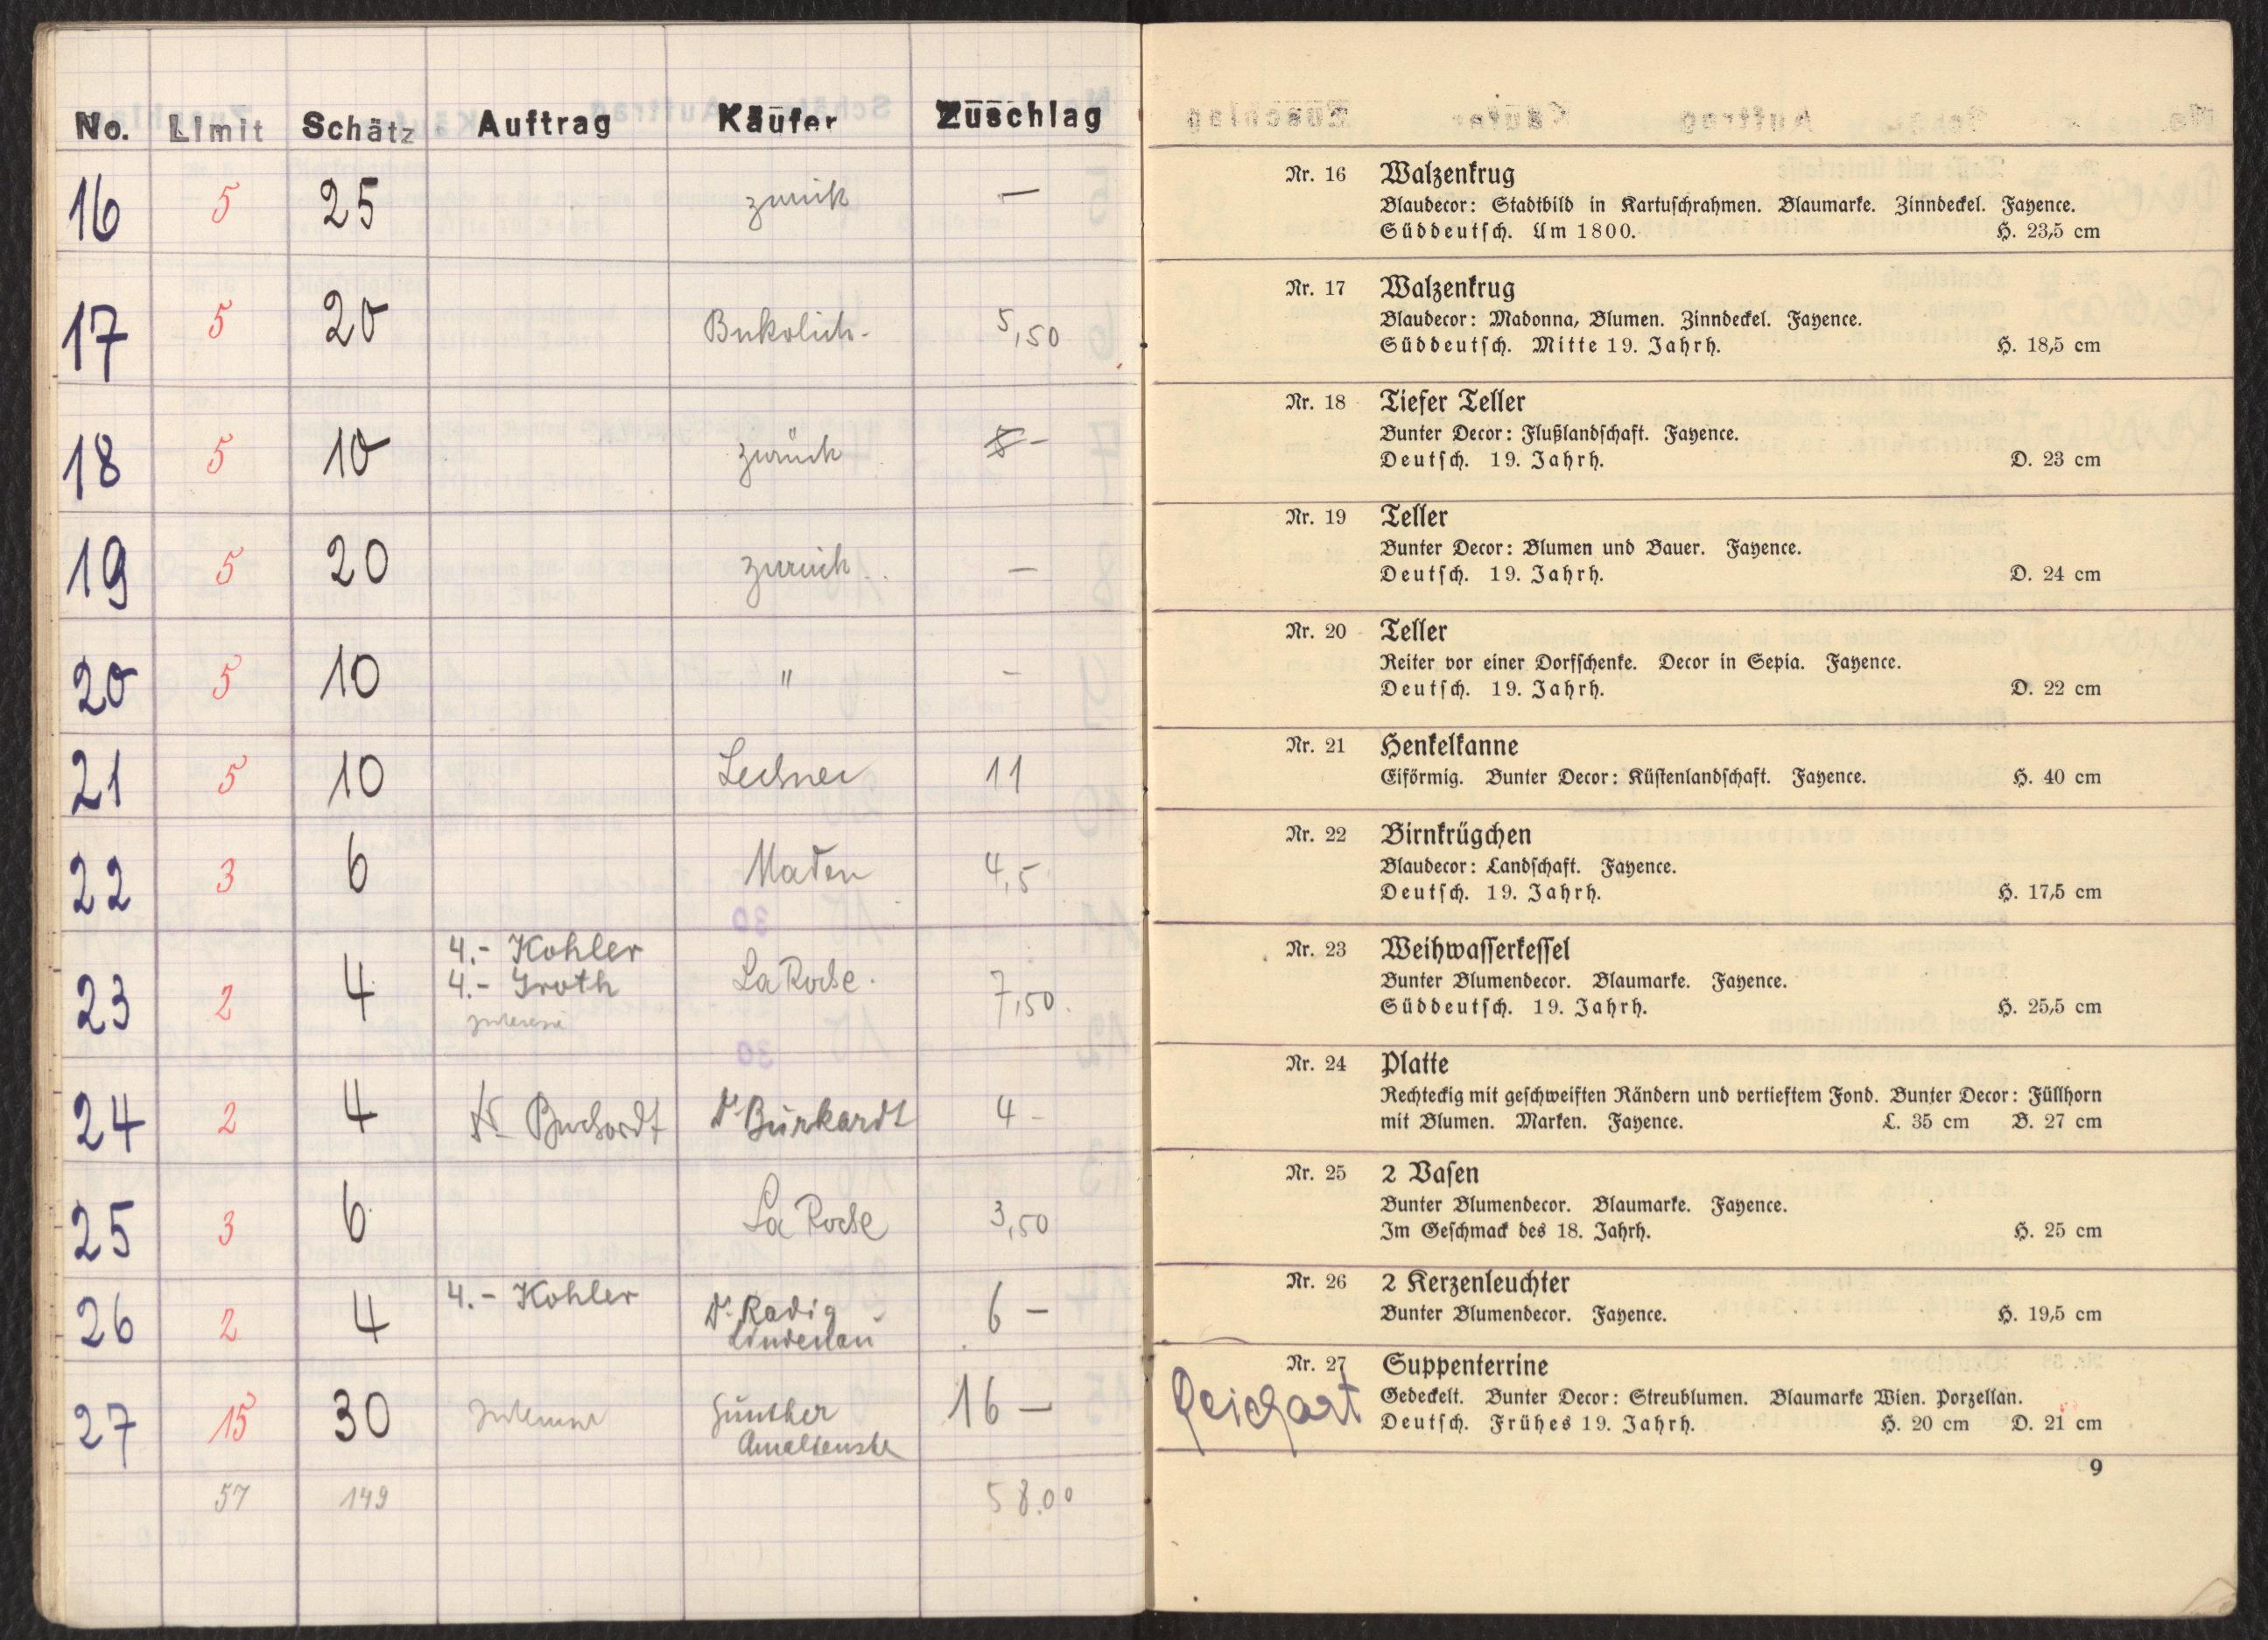 No. Limit Schätz Auftrag Käufer Zuschlag
16 5 25 zurück —
17 5 20 5,50
18 5 10 zurück 5 -
19 5 20 zurück —
20 5 10 " -
21 5 10 Lechner 11
22 3 6 4,5
4.- Kohler
23 2 4 4.- Groth La Roche. 7,50.
24 2 4 Dr. Burkardt 4 -
25 3 6 La Roche 3,50
26 2 4 4.- Kohler Dr. Radig 6 —
Lindenau
27 15 30 Günther 16 —
Amalienstr
57 149 58.00
Nr. 16 Walzenkrug
Blaudecor: Stadtbild in Kartuschrahmen. Blaumarke. Zinndeckel. Fayence.
Süddeutsch. Um 1800. H. 23,5 cm
Nr. 17 Walzenkrug
Blaudecor: Madonna, Blumen. Zinndeckel. Fayence.
Süddeutsch. Mitte 19. Jahrh. H. 18,5 cm
Nr. 18 Tiefer Teller
Bunter Decor: Flußlandschaft. Fayence.
Deutsch. 19. Jahrh. D. 23 cm
Nr. 19 Teller
Bunter Decor: Blumen und Bauer. Fayence.
Deutsch. 19. Jahrh. D. 24 cm
Nr. 20 Teller
Reiter vor einer Dorfschenke. Decor in Sepia. Fayence.
Deutsch. 19. Jahrh. D. 22 cm
Nr. 21 Henkelkanne
Eiförmig. Bunter Decor: Küstenlandschaft. Fayence. H. 40 cm
Nr. 22 Birnkrügchen
Blaudecor: Landschaft. Fayence.
Deutsch. 19. Jahrh. H. 17,5 cm
Nr. 23 Weihwasserkessel
Bunter Blumendecor. Blaumarke. Fayence.
Süddeutsch. 19. Jahrh. H. 25,5 cm
Nr. 24 Platte
Rechteckig mit geschweiften Rändern und vertieftem Fond. Bunter Decor: Füllhorn
mit Blumen. Marken. Fayence. L. 35 cm B. 27 cm
Nr. 25 2 Vasen
Bunter Blumendecor. Blaumarke. Fayence.
Im Geschmack des 18. Jahrh. H. 25 cm
Nr. 26 2 Kerzenleuchter
Bunter Blumendecor. Fayence. H. 19,5 cm
Nr. 27 Suppenterrine
Gedeckelt. Bunter Decor: Streublumen. Blaumarke Wien. Porzellan.
Deutsch. Frühes 19. Jahrh. H. 20 cm D. 21 cm
9